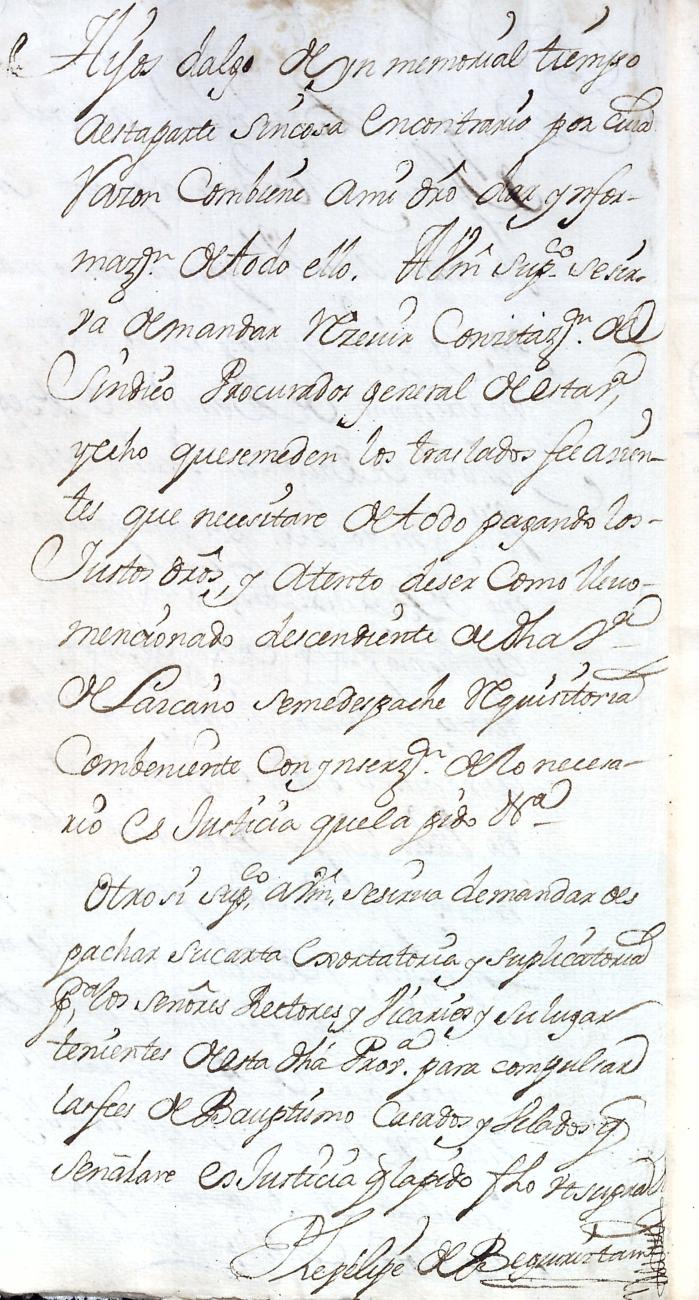 Hijos dalgo de yn memorial tiempo
aestaparte sincosa encontrario por cuia
razon combiene ami dro dar ynfor-
mazn. detodo ello. A Vm supco. sesir-
va demandar rrecivir conzitazn. del
Sindico Procurador general de esta va,
yecho quesemeden los traslados feeasien-
tes que necesitare detodo pagando los-
Justos dros, y atento deser como llevo-
mencionado descendiente de dha Va
de Lazcano semedespache rrequisitoria
combeniente con ynserzn. delo necesa-
rio es Justicia quela pido &a
Otro si supco, aVm, sesirva demandar des
pachar sucarta exortatoria y suplicatoria
pa, los señores Rectores y Vicarios y su lugar
tenientes de esta dha Prova. para compulsar
lasfees de Bauptismo Casados y Velados q
señalare es Justicia q lapido fho vt supra
Phelipe de Beguiristain